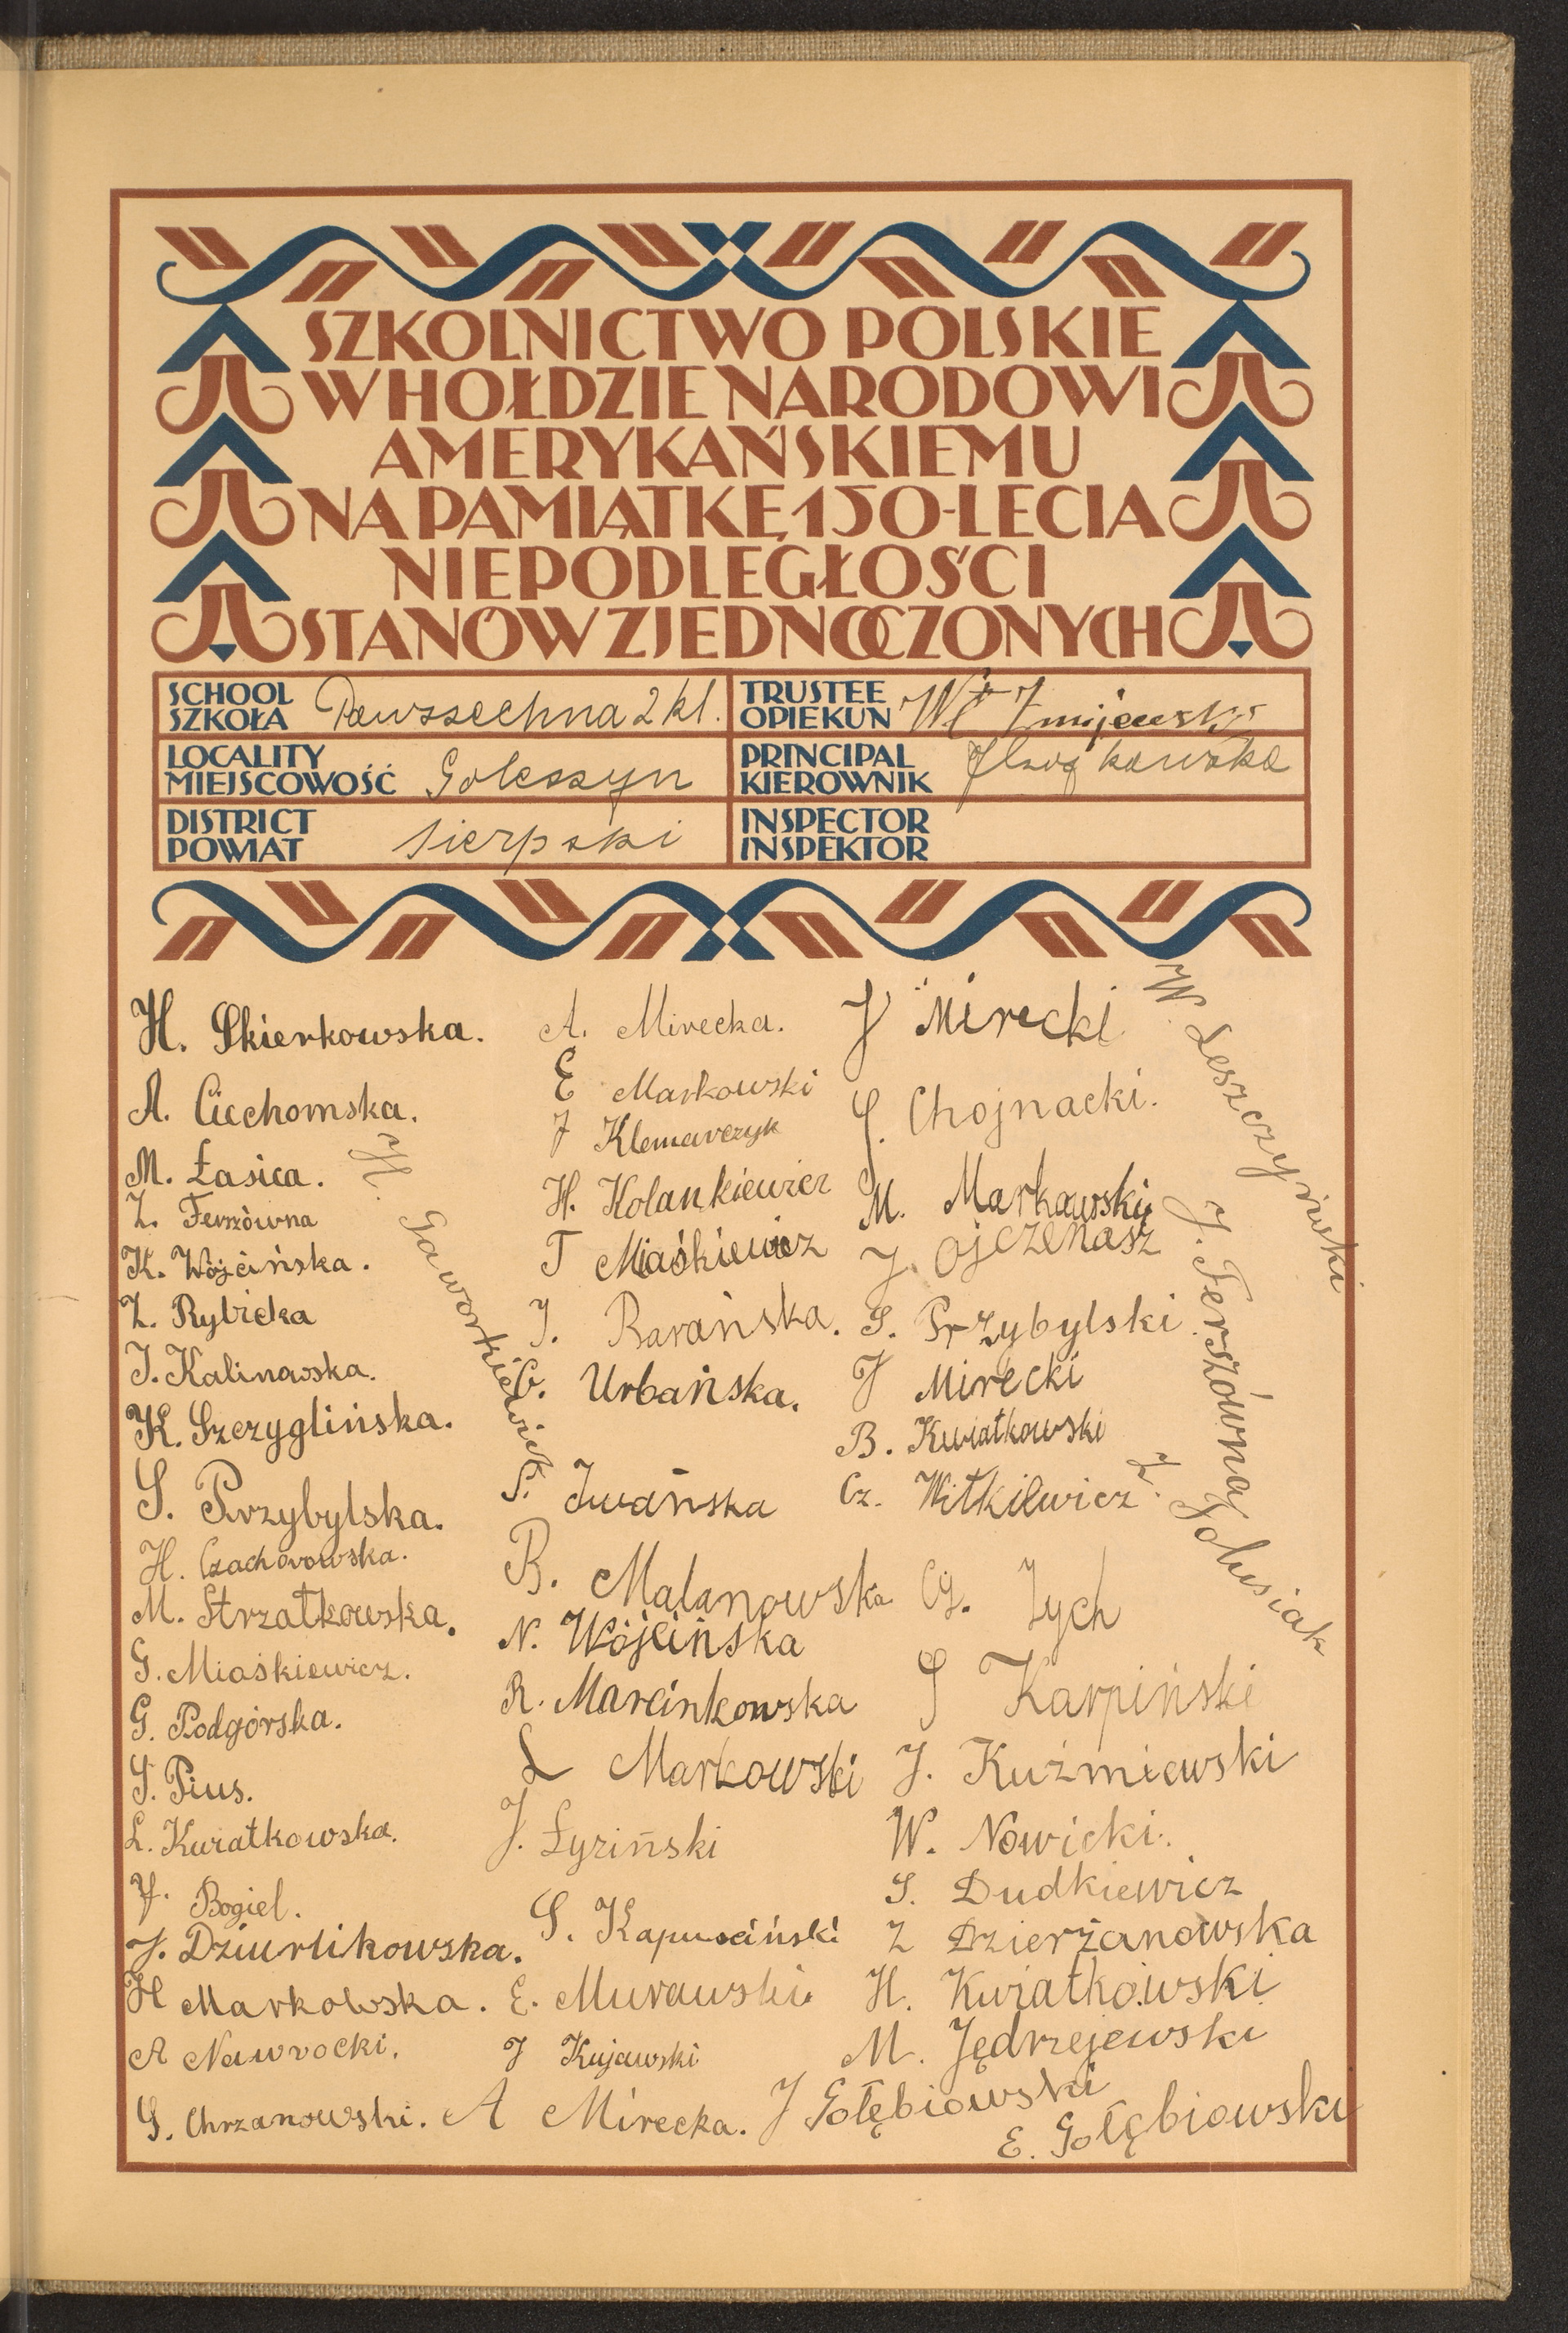 SZKOLNICTWO POLSKIE
W HOŁDZIE NARODOWI
AMERYKAŃSKIEMU
NA PAMIĄTKĘ 150-LECIA
NIEPODLEGŁOŚCI
STANÓW ZJEDNOCZONYCH
SCHOOL
SZKOŁA Powszechna 2 kl.
TRUSTEE
OPIEKUN Wł Żmijewski
LOCALITY
MIEJSCOWOŚĆ Goleszyn
PRINCIPAL
KIEROWNIK
DISTRICT
POWIAT Sierpski
INSPECTOR
INSPEKTOR
H. Skierkowska.
A. Ciechomska.
M. Łasica.
Z. Ferszówna
K. Wójcińska.
Z. Rybicka
J. Kalinowska.
K. Szczyglińska.
S. Przybylska.
H. Czachorowska.
M. Strzatkowska.
G. Miaśkiewicz.
G. Podgórska.
S. Pius.
L. Kwiatkowska.
F. Bogiel.
J. Dziurlikowska.
H Markowska.
A Nawrocki.
S. Chrzanowski.
W. Gaworkiewicz
A. Mirecka.
E Markowski
J Klemarczyk
H. Kolankiewicz
T Miaśkiewicz
J. Barańska.
G. Urbańska.
S. Iwańska
B. Malanowska
N. Wójcińska
R. Marcinkowska
L Markowski
J. Łyziński
S. Kapuściński
E. Murawski
J Kujawski
A Mirecka.
J Mirecki
S. Chojnacki.
M. Markowski
J. Ojczenasz
S. Przybylski
J Mirecki
B. Kwiatkowski
Cz. Witkiewicz
Cz. Zych
S Karpiński
J. Kuźmiewski
W. Nowicki.
S. Dudkiewicz
Z Dzierżanowska
H. Kwiatkowski
M. Jędrzejewski
J Gołębiowski
E. Gołębiowski
W. Leszczyński
J. Ferszówna
Z. Golusiak